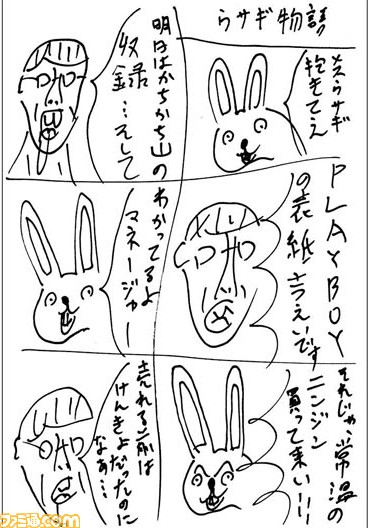 うサギ物語
女うサギ
抱きてえ
明日はかちかち山の
収録…そして
PLAYBOY
の表紙さつえいです
わかってるよ
マネージャー
それじゃ、常温の
ニンジン
買って来い!!
売れる前は
けんきょだったのに
なぁ…
ファミ通.com